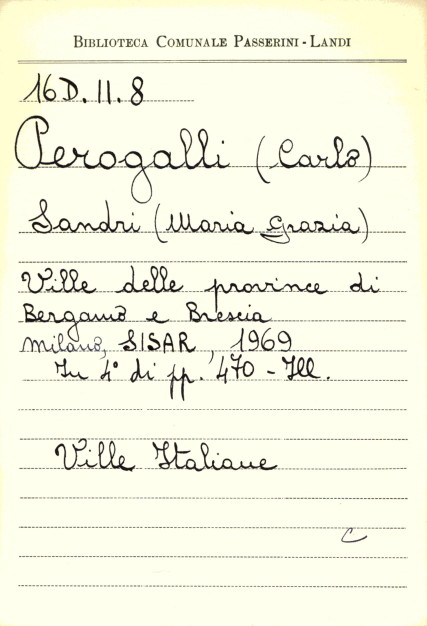 BIBLIOTECA COMUNALE PASSERINI - LANDI
16D.II.8
Perogalli (Carlo)
Sandri (Maria Grazia)
Ville delle province di
Bergamo e Brescia
Milano, SISAR, 1969
In 4° di pp. 470 - Ill.
Ville Italiane
C